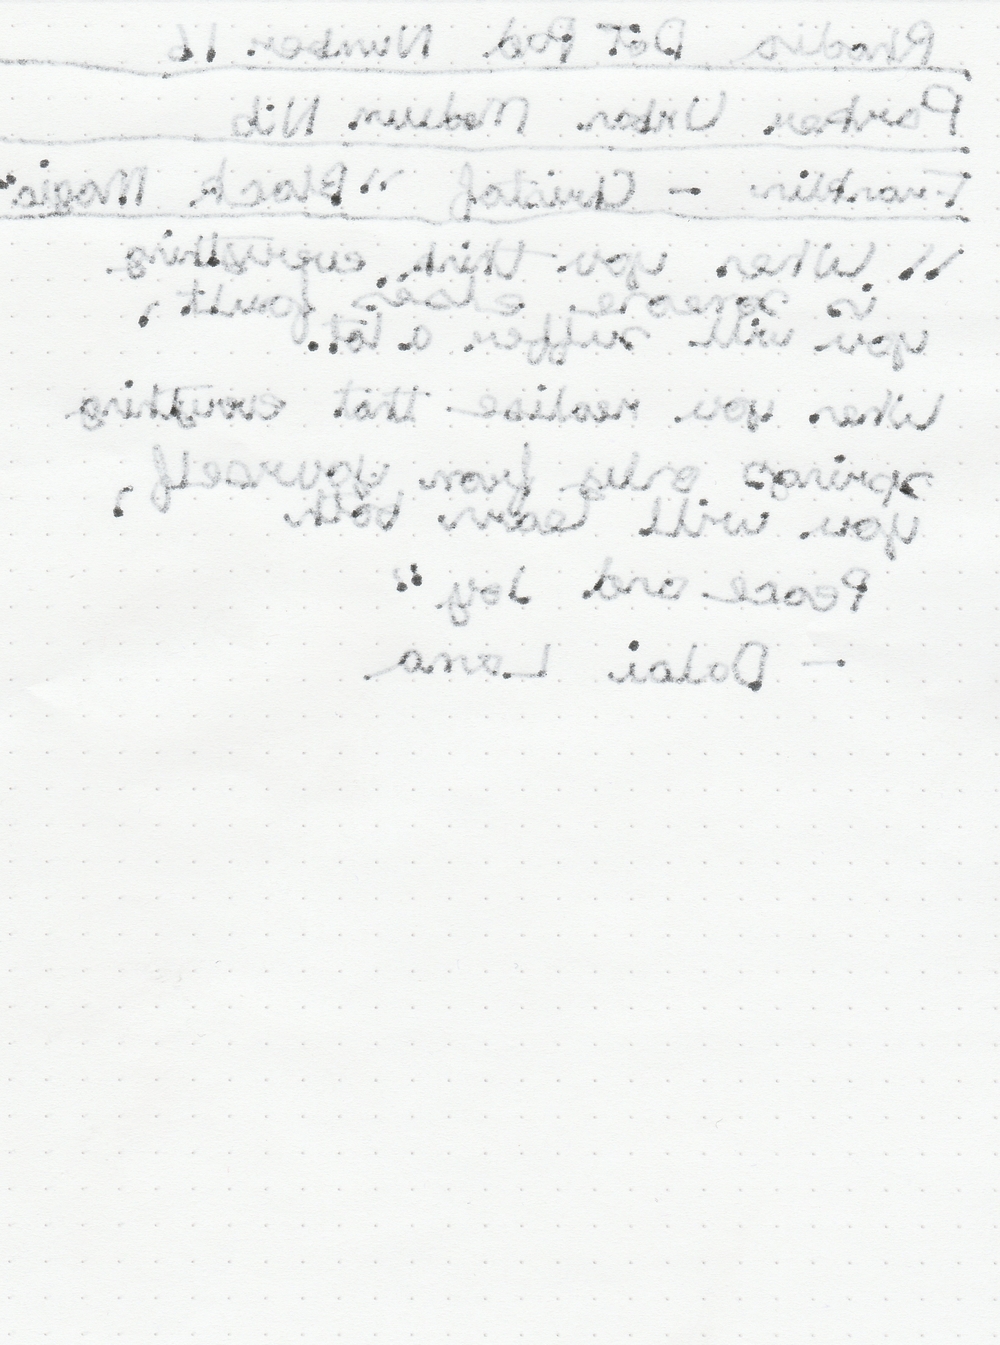 Rhodia Dot Pad Number 16
Parker Urban Medium Nib
Franklin - Christof "Black Magic"
"When you think everything
is someone elses fault,
you will suffer a lot.
When you realise that everything
springs only from yourself,
you will learn both
Peace and Joy"
- Dalai Lama